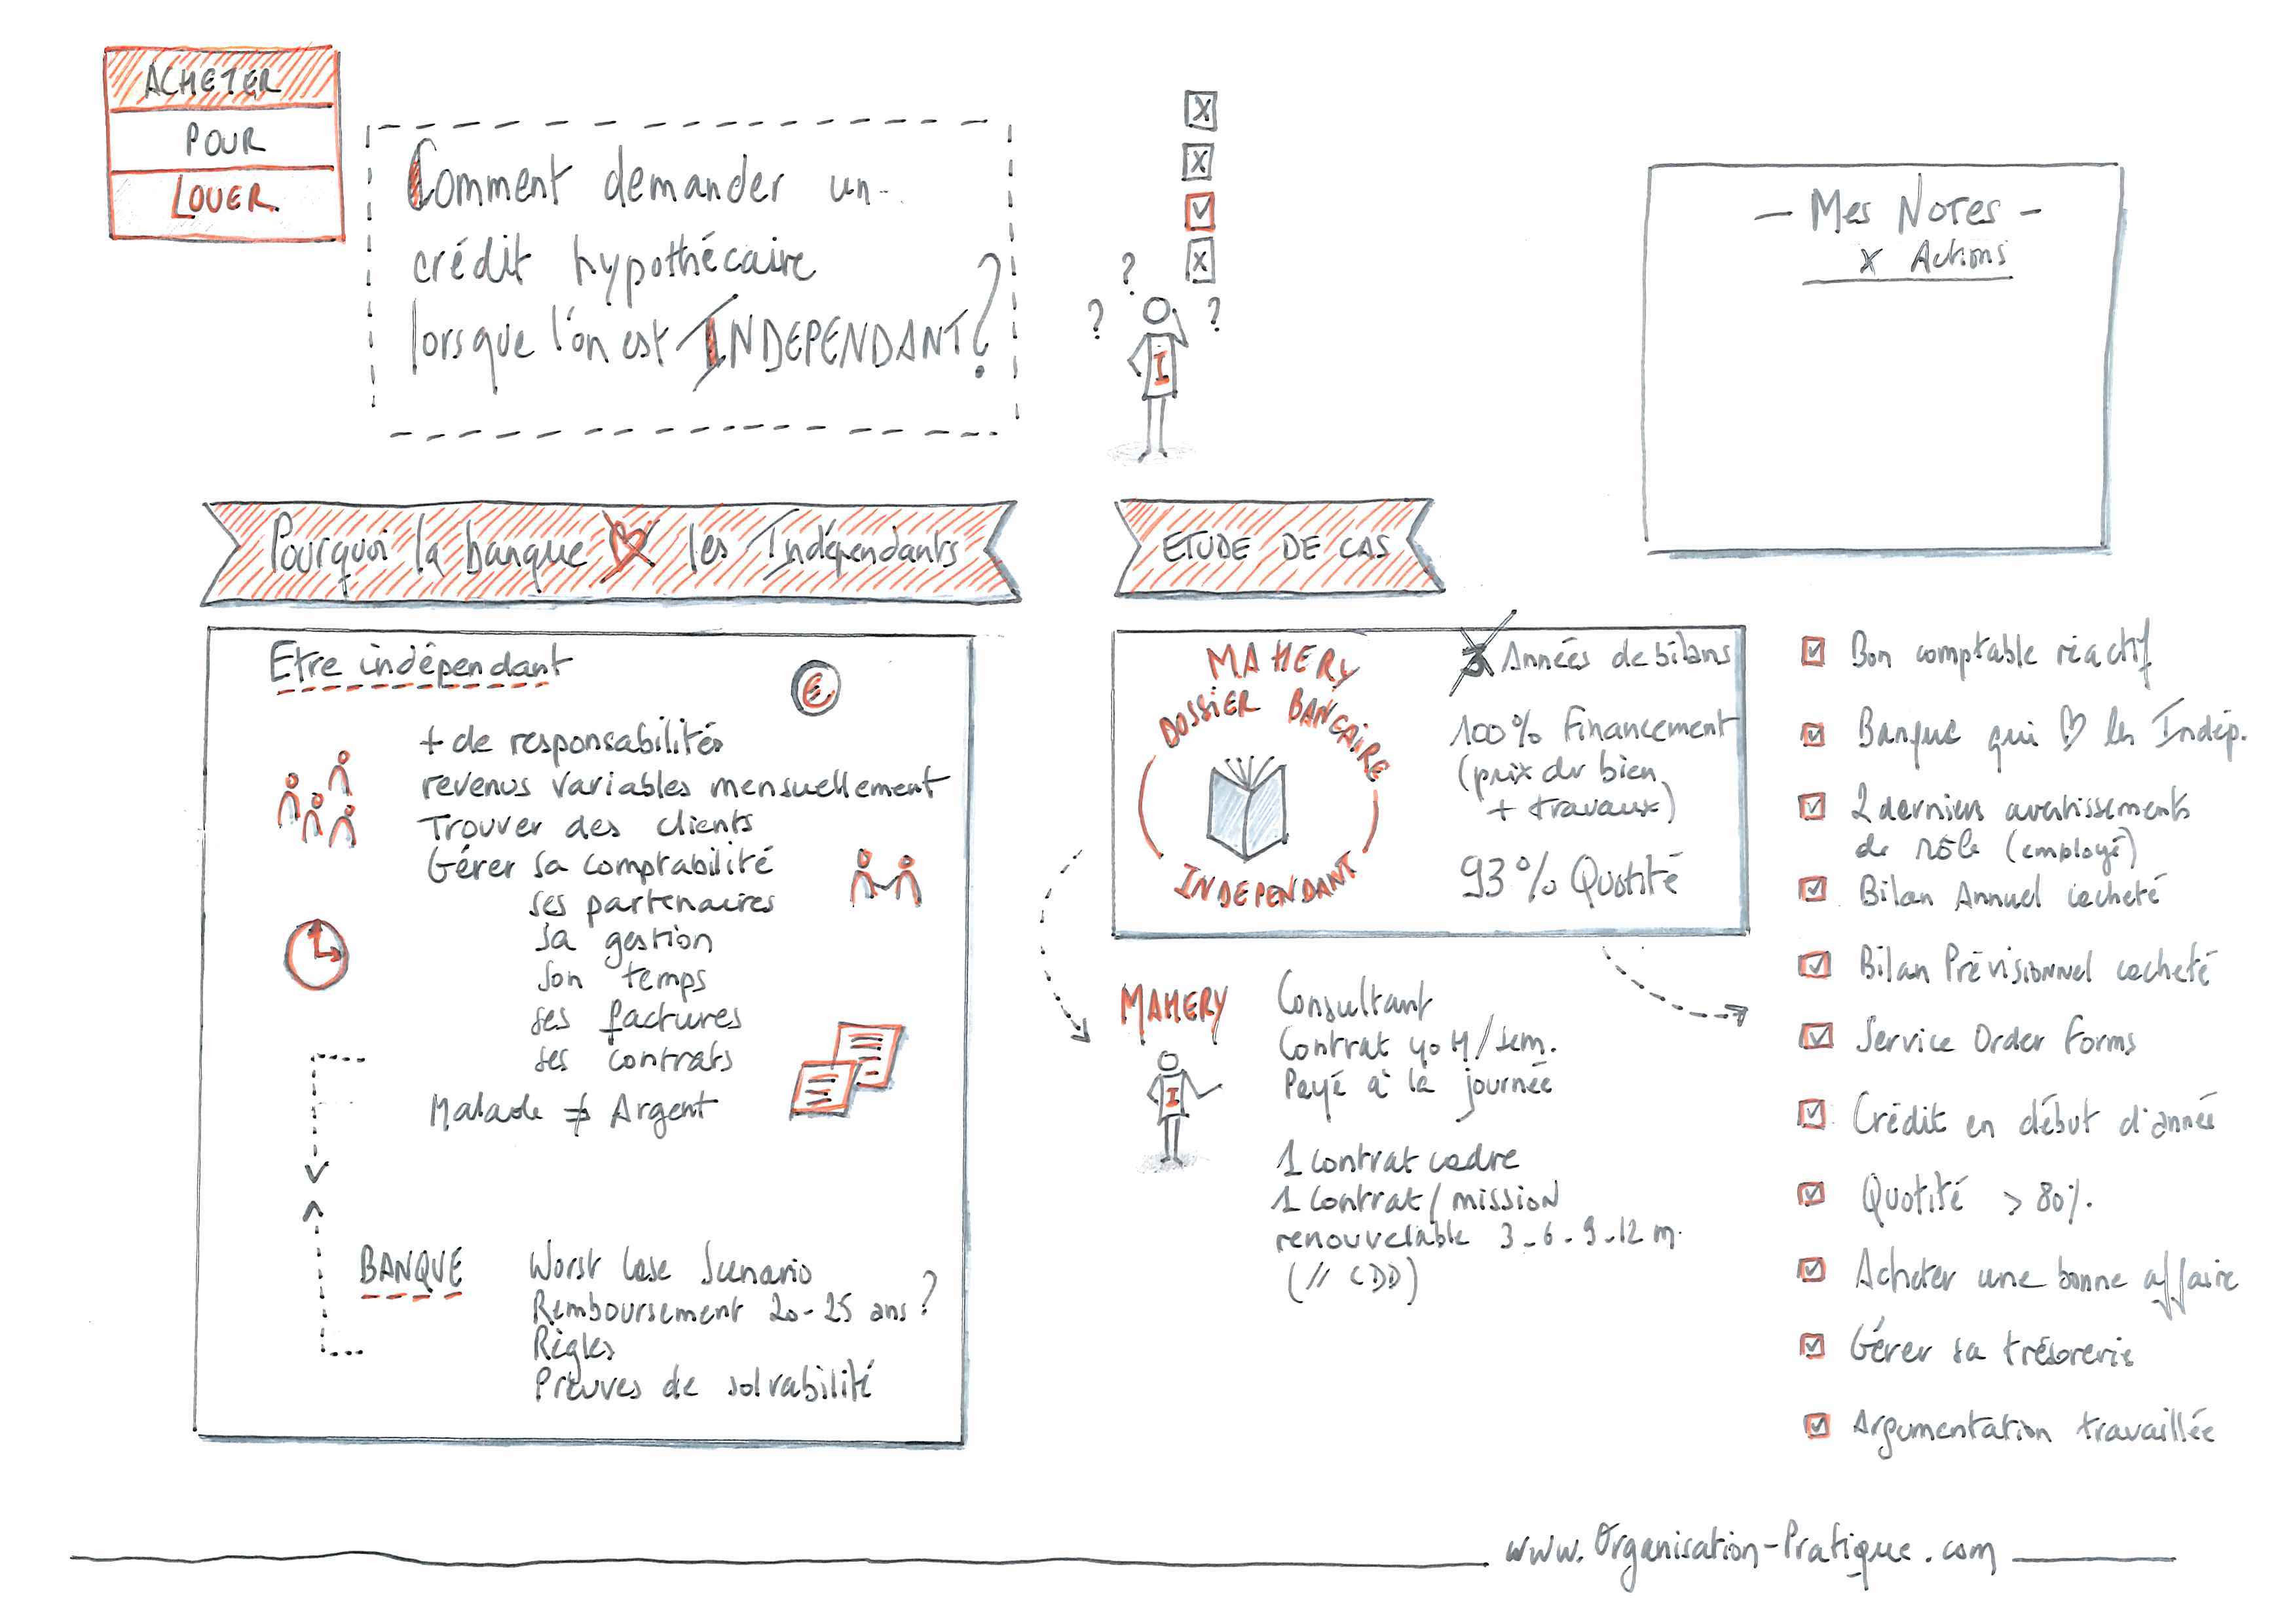 ACHETER
POUR
LOUER
Comment demander un
crédit hypothécaire
lorsque l'on est INDEPENDANT?
X
X
X
? ? ?
I
- Mes Notes -
x Actions
Pourquoi la banque les Indépendants
ETUDE DE CAS
Etre indépendant
€
+ de responsabilités
revenus variables mensuellement
Trouver des clients
Gérer sa comptabilité
ses partenaires
sa gestion
son temps
ses factures
ses contrats
Malade ≠ Argent
BANQUE
Worst Case Scenario
Remboursement 20-25 ans ?
Règles
Preuves de solvabilité
MAHERY
DOSSIER BANCAIRE
INDEPENDANT
3 Années de bilans
100% Financement
(prix du bien
+ travaux)
93% Quotité
MAHERY
I
Consultant
Contrat 40 H/sem.
Payé à la journée
1 contrat cadre
1 contrat/mission
renouvelable 3-6-9-12 m.
(// CDD)
Bon comptable réactif
Banque qui ♡ les Indép.
2 derniers avertissements
de rôle (employé)
Bilan Annuel cacheté
Bilan Prévisionnel cacheté
Service Order Forms
Crédit en début d'année
Quotité > 80%
Acheter une bonne affaire
Gérer sa trésorerie
Argumentation travaillée
www.Organisation-Pratique.com